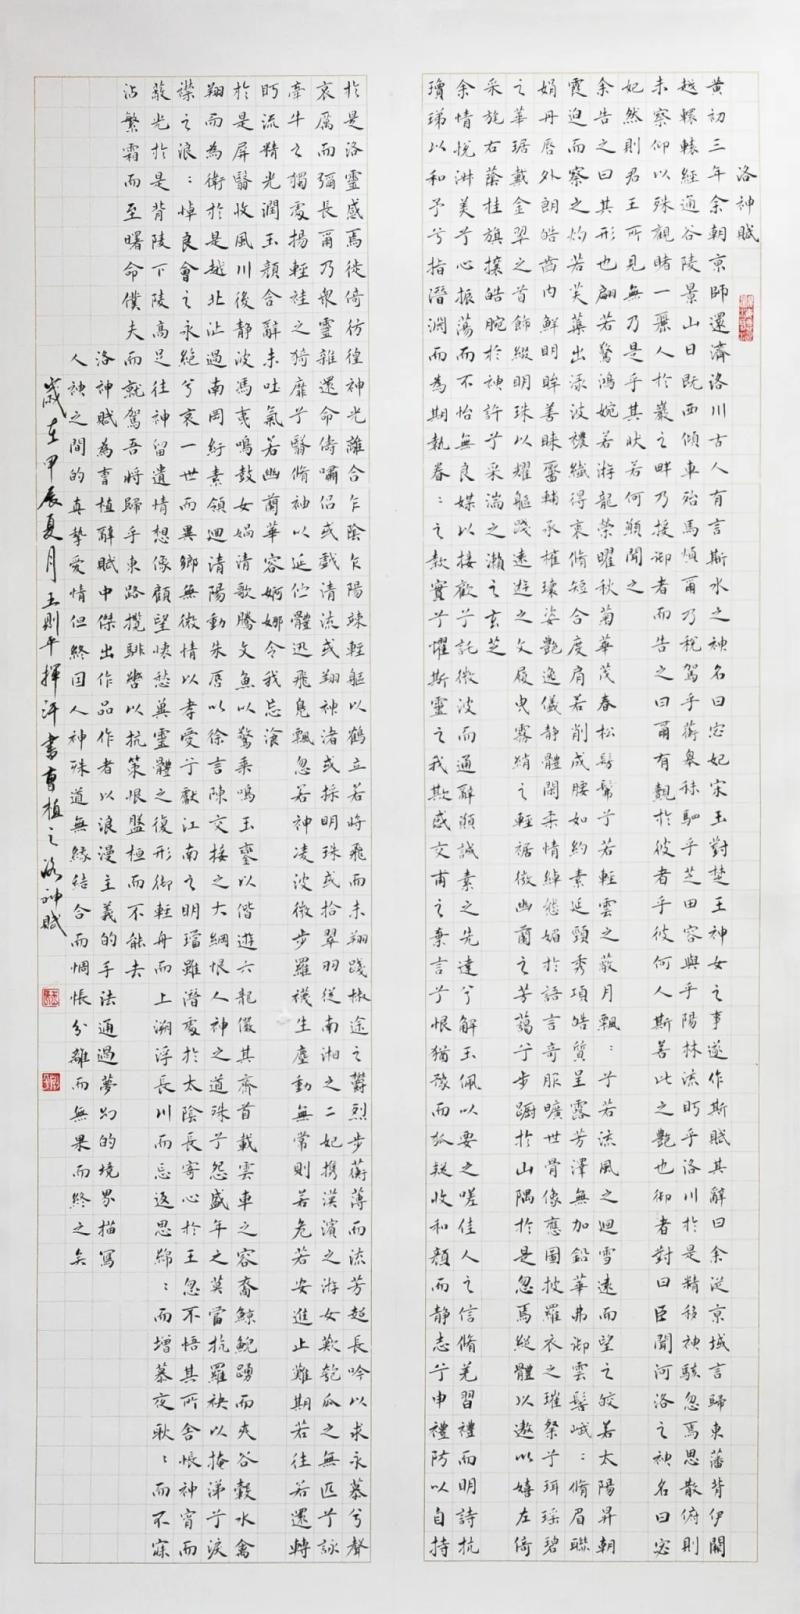 洛神賦
黄初三年余朝京師還濟洛川古人有言斯水之神名曰宓妃宋玉對楚王神女之事遂作斯賦其辭曰余從京域言歸東藩背伊闕
越轘轅經通谷陵景山日既西傾車殆馬煩爾乃税駕乎蘅皋秣駟乎芝田容與乎陽林流盼乎洛川於是精移神駭忽焉思散俯則
未察仰以殊觀睹一麗人於巖之畔乃援御者而告之曰爾有覿於彼者乎彼何人斯若此之艷也御者對曰臣聞河洛之神名曰宓
妃然則君王所見無乃是乎其狀若何願聞之
余告之曰其形也翩若驚鴻婉若游龍榮曜秋菊華茂春松髣髴兮若輕雲之蔽月飄：兮若流風之迴雪遠而望之皎若太陽昇朝
霞迫而察之灼若芙蕖出淥波穠纖得衷脩短合度肩若削成腰如約素延頸秀項皓質呈露芳澤無加鉛華弗御雲髻峨：脩眉聯
娟丹唇外朗皓齒内鮮明眸善睞靨輔承權瓌姿艷逸儀静體閑柔情綽態媚於語言奇服曠世骨像應圖披羅衣之璀粲兮珥瑶碧
之華琚戴金翠之首飾綴明珠以耀軀踐遠遊之文履曳霧綃之輕裾微幽蘭之芳藹兮步踟於山隅於是忽焉縱體以遨以嬉左倚
采旄右蔭桂旗攘皓腕於神滸兮采湍瀨之玄芝
余情悦淋美兮心振蕩而不怡無良媒以接歡兮託微波而通辭願誠素之先達兮解玉佩以要之嗟佳人之信脩羌習禮而明詩抗
瓊珶以和予兮指潛淵而為期執眷：之款實兮懼斯靈之我欺感交甫之棄言兮恨猶豫而狐疑收和顏而静志兮申禮防以自持
於是洛靈感焉徙倚彷徨神光離合乍陰乍陽竦輕軀以鶴立若將飛而未翔踐椒途之鬱烈步蘅薄而流芳超長吟以求永慕兮聲
哀厲而彌長爾乃衆靈雜遝命儔嘯侣或戲清流或翔神渚或採明珠或拾翠羽從南湘之二妃携漢濱之游女歎匏瓜之無匹兮詠
牽牛之獨處揚輕袿之猗靡兮翳脩袖以延佇體迅飛鳧飄忽若神凌波微步羅襪生塵動無常則若危若安進止難期若往若還轉
盼流精光潤玉顏含辭未吐氣若幽蘭華容婀娜令我忘飡
於是屏翳收風川後静波馮夷鳴鼓女媧清歌騰文魚以警乘鳴玉鑾以偕遊六龍儼其齊首載雲車之容裔鯨鯢踴而夾谷轂水禽
翔而為衛於是越北沚過南岡紆素領迴清陽動朱唇以徐言陳交接之大綱恨人神之道殊兮怨盛年之莫當抗羅袂以掩涕兮淚
襟之浪：悼良會之永絶兮哀一世而異鄉無微情以效愛兮獻江南之明璫雖潛處於太陰長寄心於王忽不悟其所舍悵神宵而
蔽光於是背陵下陵高足往神留遺情想像顧望懷愁冀靈體之復形御輕舟而上溯浮長川而忘返思綿：而增慕夜耿：而不寐
沾繁霜而至曙命僕夫而就駕吾將歸乎東路攬騑轡以抗策恨盤桓而不能去
洛神賦為曹植辭賦中傑出作品作者以浪漫主義的手法通過夢幻的境界描寫
人神之間的真摯愛情但終因人神殊道無緣結合而惆悵分離而無果而終之矣
歲在甲辰夏月王則平揮汗書曹植之洛神賦